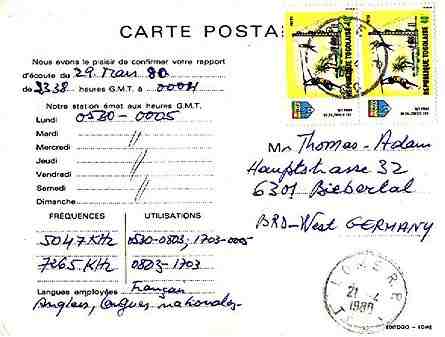 CARTE POSTA
Nous avons le plaisir de confirmer votre rapport
d'écoute du 29 Mars 80
de 2338 heures G.M.T. à 0004
Notre station émet aux heures G.M.T.
Lundi 0530-0005
Mardi //
Mercredi
Jeudi //
Vendredi
Samedi //
Dimanche
FRÉQUENCES UTILISATIONS
5047 KHz 0530-0803; 1703-0005
7265 KHz 0803-1703
Langues employées Français
Anglais, langues nationales
REPUBLIQUE TOGOLAISE 40
REPUBLIQUE TOGOLAISE 40
Mr Thomas-Adam
Hauptstrasse 32
6301 Biebertal
BRD-West GERMANY
LOME R P
21-4
1980
EDITOGO - LOME